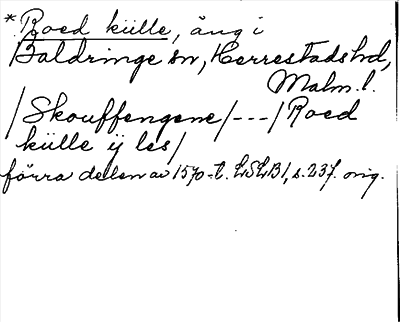 * Roed külle, äng i
Baldringe sn, Herrestads hd,
Malm. l.
/Skouffengene/---/Roed
külle ÿ les/
förra delen av 1570-t. LSLB1, s. 237. orig.